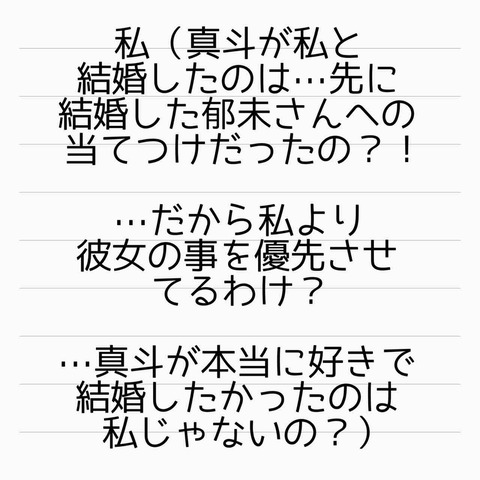 私（真斗が私と
結婚したのは…先に
結婚した郁未さんへの
当てつけだったの？！
…だから私より
彼女の事を優先させ
てるわけ？
…真斗が本当に好きで
結婚したかったのは
私じゃないの？）